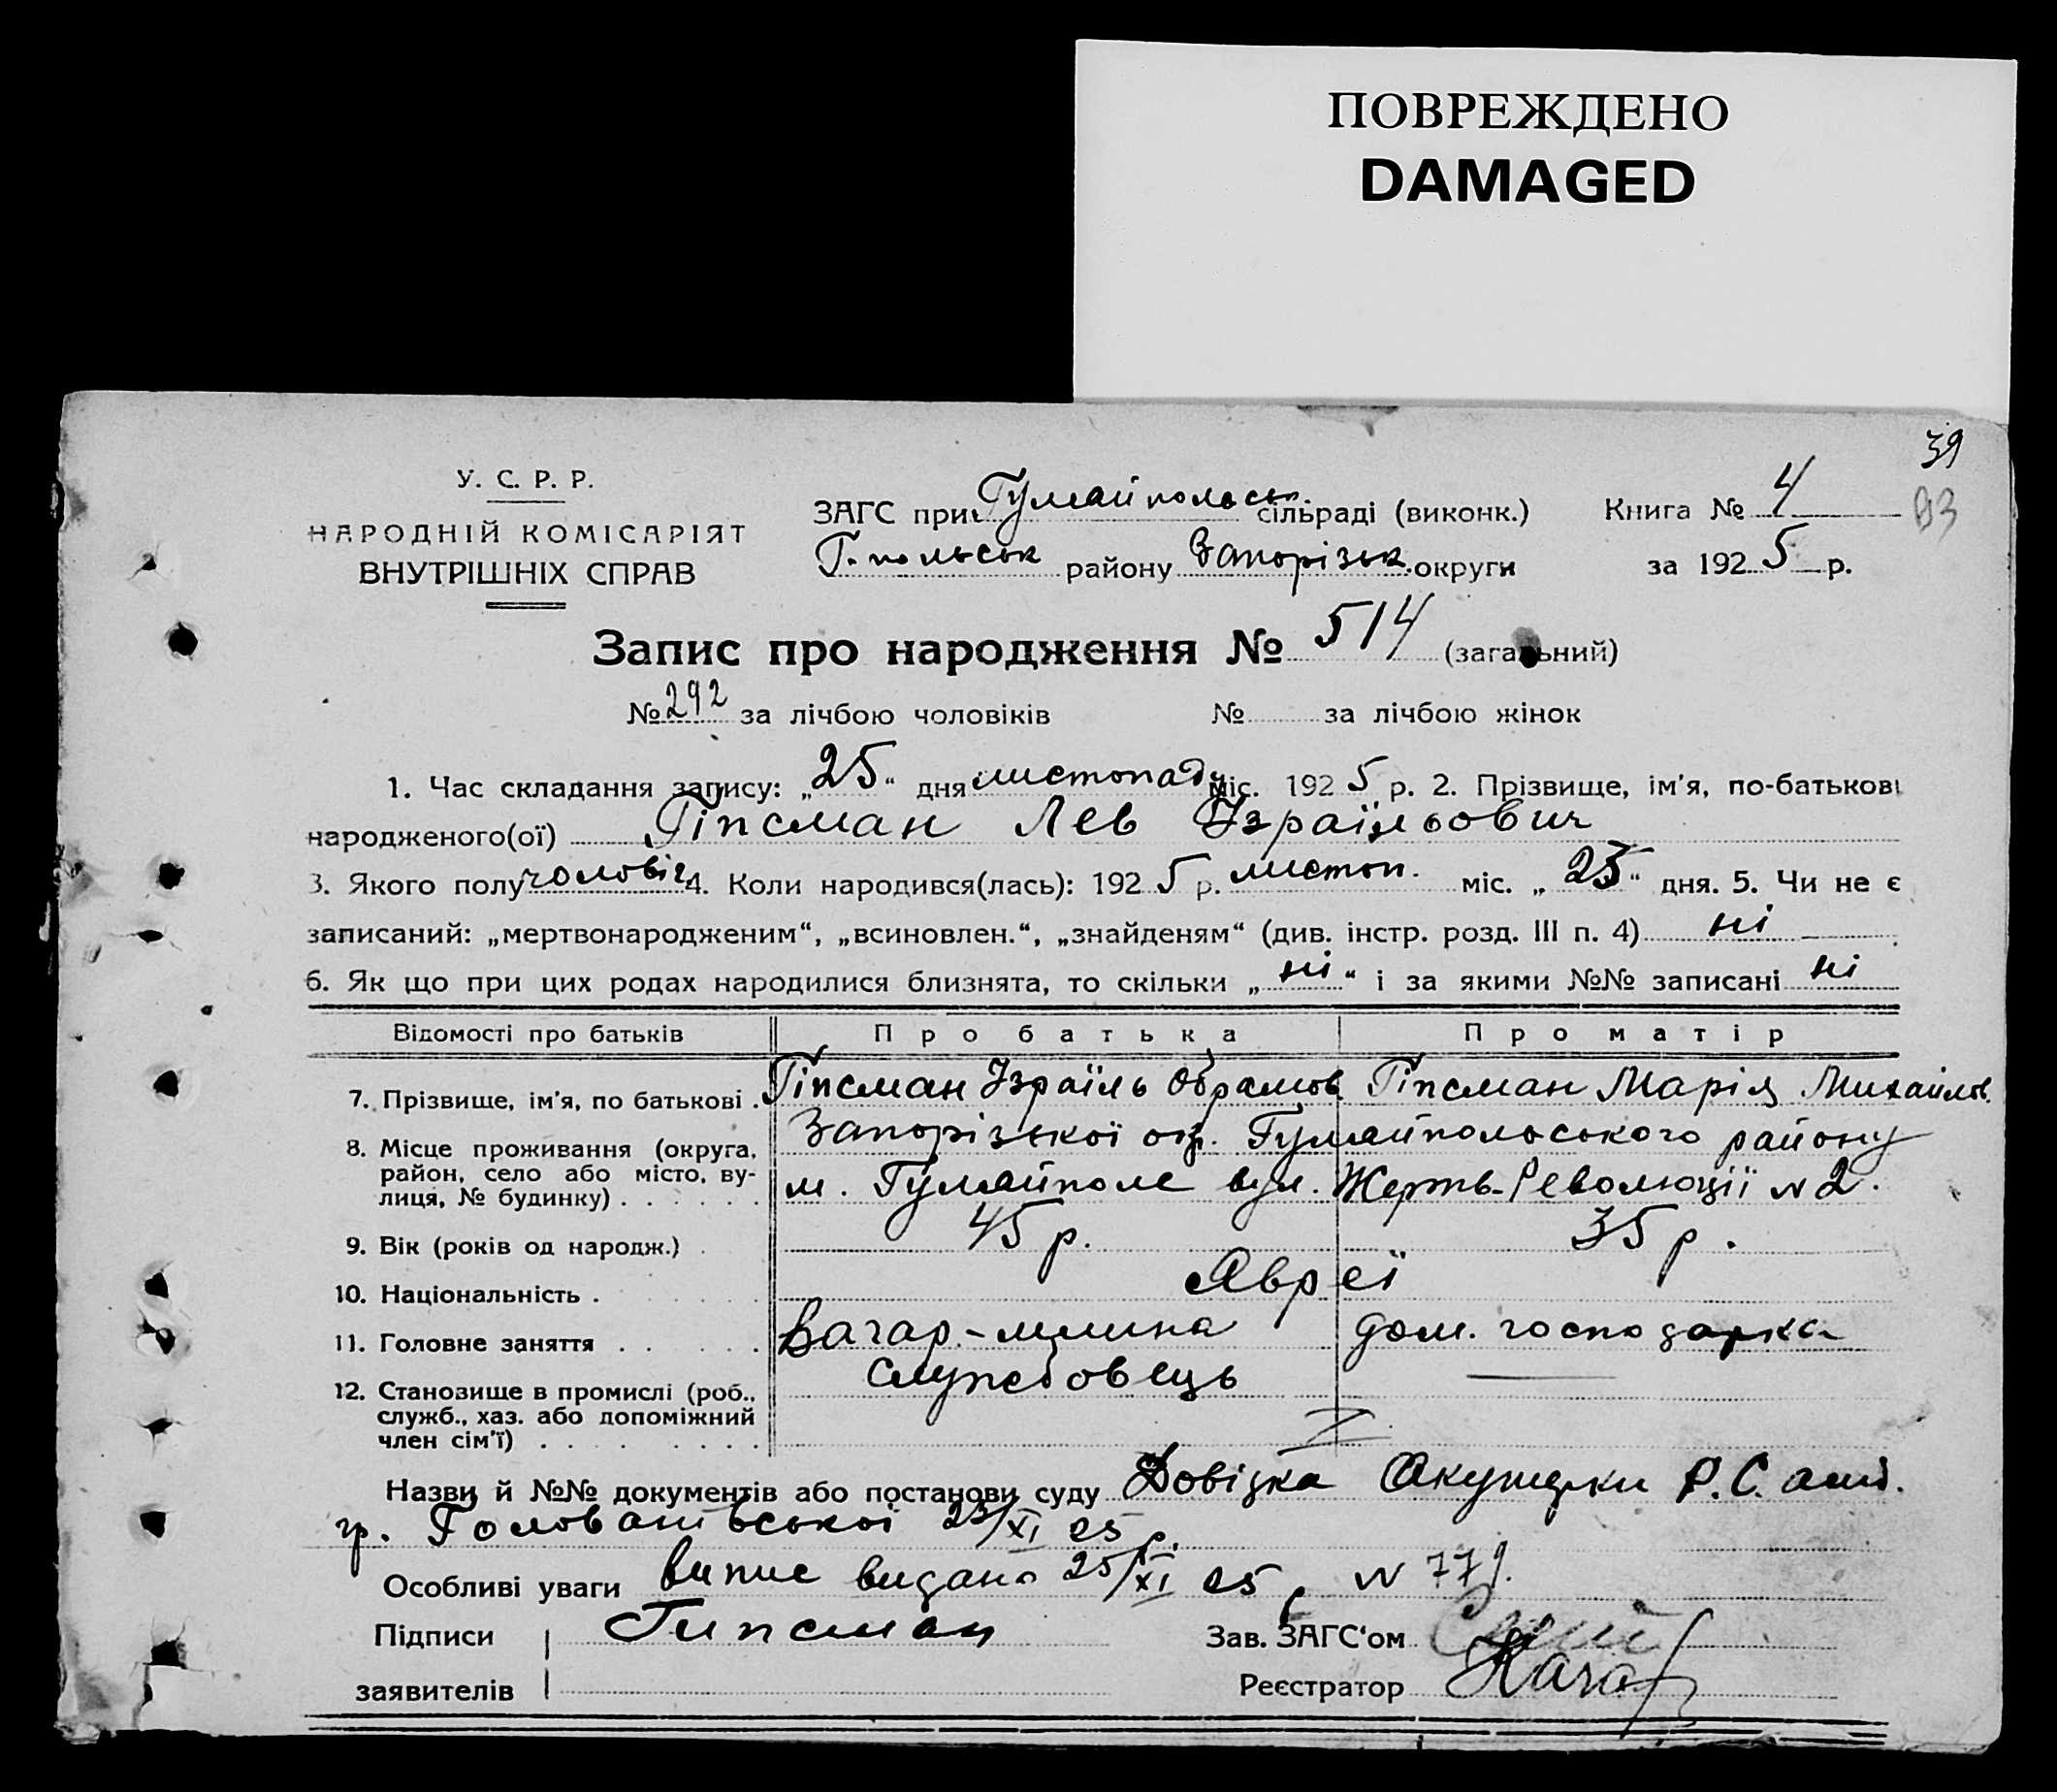 ПОВРЕЖДЕНО
DAMAGED
39
93
У. С. Р. Р.
НАРОДНІЙ КОМІСАРІЯТ
ВНУТРІШНІХ СПРАВ
ЗАГС при Гуляйпольськ. сільраді (виконк.)
Г.польськ району Запорізьк. округи
Книга № 4
за 1925 р.
Запис про народження № 514 (загальний)
№ 292 за лічбою чоловіків № за лічбою жінок
1. Час складання запису: „25“ дня листопаду міс. 1925 р. 2. Прізвище, ім'я, по-батькові
народженого(ої) Гіпсман Лев Ізраїльович
3. Якого полу чоловіч 4. Коли народився(лась): 1925 р. листоп. міс. „23“ дня. 5. Чи не є
записаний: „мертвонародженим“, „всиновлен.“, „знайденям“ (див. інстр. розд. III п. 4) ні
6. Як що при цих родах народилися близнята, то скільки „ні“ і за якими №№ записані ні
Відомості про батьків Про батька Про матір
7. Прізвище, ім'я, по батькові . Гіпсман Ізраїль Абрамов. Гіпсман Марія Михайлов.
8. Місце проживання (округа, Запорізької окр. Гуляйпольського району
район, село або місто, ву-
лиця, № будинку) . . . . . . м. Гуляйполе вул. Жертв-Революції № 2.
9. Вік (років од народж.) . 45 р. 35 р.
10. Національність . Явреї
11. Головне заняття . . . . . Вагар.-млина дом. господарка
12. Становище в промислі (роб., службовець
служб., хаз. або допоміжний
член сім'ї) . . . . . . . .
Назви й №№ документів або постанови суду Довідка Акушерки Р.С. амб.
гр. Голованівської 23/XI 25 р.
Особливі уваги випис видано 25/XI 25 р. № 779.
Підписи Гипсман Зав. ЗАГС'ом
заявителів Реєстратор